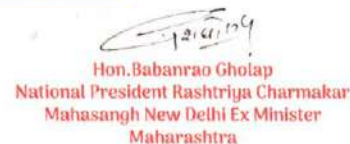 Hon.Babanrao Gholap
National President Rashtriya Charmakar
Mahasangh New Delhi Ex Minister
Maharashtra